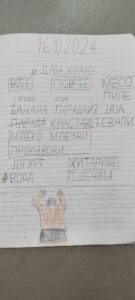 16.10.2024
ДАН ХРАНЕ
ВОЋЕ ПОВРЋЕ МЕСО
ПИЛЕ
БАНАНА ПАРАДАИЗ ЈАЈА
КРАСТАВЕЋЕВАПИ
МЛЕКО МЛЕЧНИ
ПРОИЗВОДИ
ЈОГУРТ ЖИТАРИЦЕ
ВОДА ПШЕНИЦА